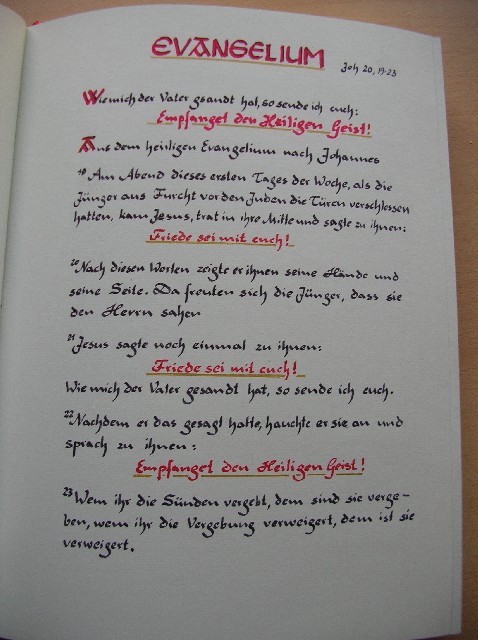 EVANGELIUM
Joh 20, 19-23
Wie mich der Vater gsandt hat, so sende ich euch:
Empfanget den Heiligen Geist!
Aus dem heiligen Evangelium nach Johannes
19 Am Abend dieses ersten Tages der Woche, als die
Jünger aus Furcht vor den Juden die Türen verschlossen
hatten, kam Jesus, trat in ihre Mitte und sagte zu ihnen:
Friede sei mit euch!
20 Nach diesen Worten zeigte er ihnen seine Hände und
seine Seite. Da freuten sich die Jünger, dass sie
den Herrn sahen
21 Jesus sagte noch einmal zu ihnen:
Friede sei mit euch!
Wie mich der Vater gesandt hat, so sende ich euch.
22 Nachdem er das gesagt hatte, hauchte er sie an und
sprach zu ihnen:
Empfanget den Heiligen Geist!
23 Wem ihr die Sünden vergebt, dem sind sie verge-
ben, wem ihr die Vergebung verweigert, dem ist sie
verweigert.